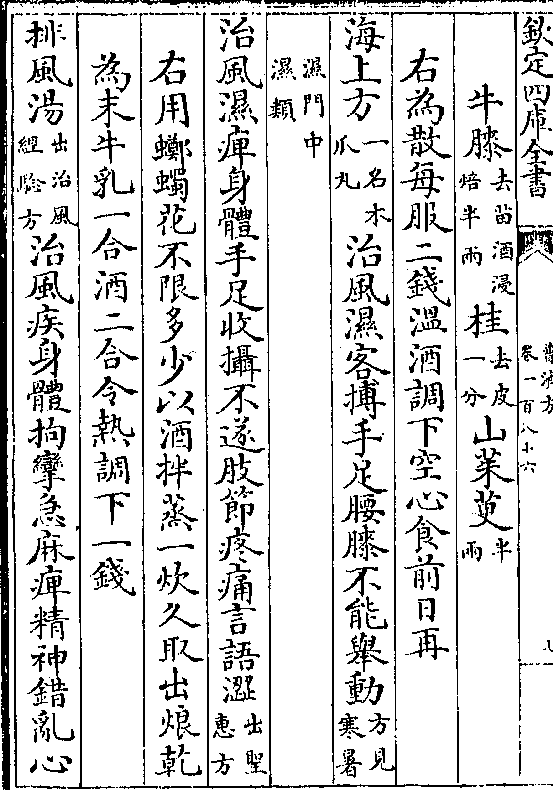 欽定四庫全書
普濟方
卷一百八十六
牛膝去苗酒浸焙半兩 桂去皮一分 山茱萸半兩
右為散每服二錢溫酒調下空心食前日再
海上方一名木瓜丸 治風濕客搏手足腰膝不能舉動方見寒暑
濕門中濕類
治風濕痺身體手足收攝不遂肢節疼痛言語澀出聖惠方
右用躑躅花不限多少以酒拌蒸一炊久取出烺乾
為末牛乳一合酒二合令熱調下一錢
排風湯出治風經驗方 治風疾身體拘攣急麻痺精神錯亂心